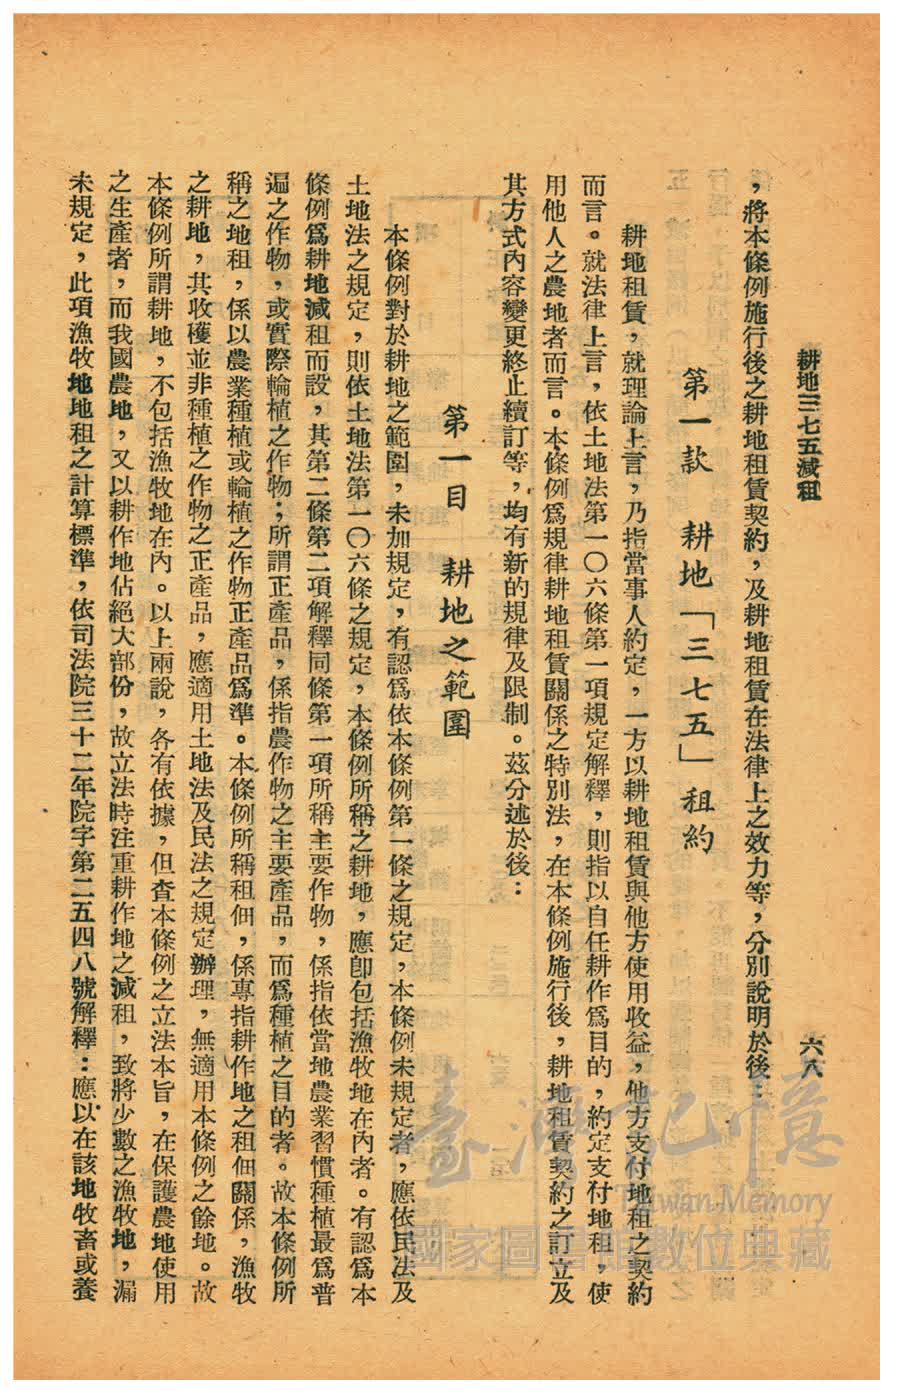 耕地三七五減租
六八
，將本條例施行後之耕地租賃契約，及耕地租賃在法律上之效力等，分別說明於後：
第一款　耕地「三七五」租約
耕地租賃，就理論上言，乃指當事人約定，一方以耕地租賃與他方使用收益，他方支付地租之契約
而言。就法律上言，依土地法第一〇六條第一項規定解釋，則指以自任耕作爲目的，約定支付地租，使
用他人之農地者而言。本條例爲規律耕地租賃關係之特別法，在本條例施行後，耕地租賃契約之訂立及
其方式內容變更終止續訂等，均有新的規律及限制。茲分述於後：
第一目　耕地之範圍
本條例對於耕地之範圍，未加規定，有認爲依本條例第一條之規定，本條例未規定者，應依民法及
土地法之規定，則依土地法第一〇六條之規定，本條例所稱之耕地，應卽包括漁牧地在內者。有認爲本
條例爲耕地減租而設，其第二條第二項解釋同條第一項所稱主要作物，係指依當地農業習慣種植最爲普
遍之作物，或實際輪植之作物；所謂正產品，係指農作物之主要產品，而爲種植之目的者。故本條例所
稱之地租，係以農業種植或輪植之作物正產品爲準。本條例所稱租佃，係專指耕作地之租佃關係，漁牧
之耕地，其收穫並非種植之作物之正產品，應適用土地法及民法之規定辦理，無適用本條例之餘地。故
本條例所謂耕地，不包括漁牧地在內。以上兩說，各有依據，但查本條例之立法本旨，在保護農地使用
之生產者，而我國農地，又以耕作地佔絕大部份，故立法時注重耕作地之減租，致將少數之漁牧地，漏
未規定，此項漁牧地地租之計算標準，依司法院三十二年院字第二五四八號解釋：應以在該地牧畜或養
臺灣記憶
Taiwan Memory
國家圖書館數位典藏